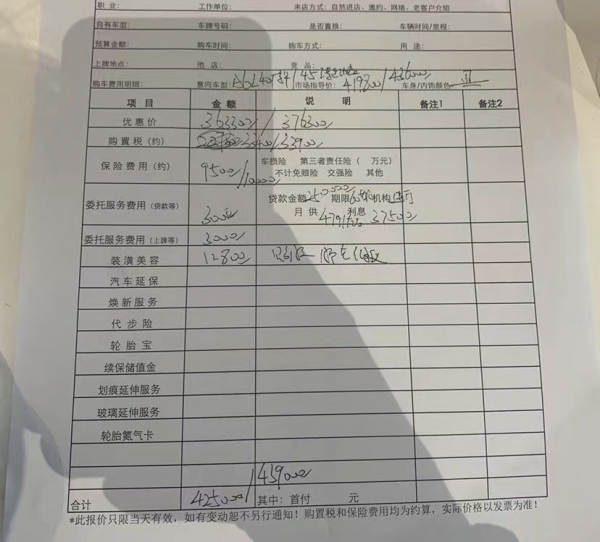 职 业： 工作单位： 来店方式：自然进店、邀约、网络、老客户介绍
自有车型： 车牌号码： 是否置换： 车辆时间/里程：
预算金额： 购车时间： 购车方式： 用 途：
上牌地点： 他 店： 竞 品：
购车费用明细： 意向车型：A6L40 /45 市场指导价：419800/436000 车身/内饰颜色：
项 目 金 额 说 明 备注1 备注2
优 惠 价 363300/376300
购 置 税（约） 33400/33900
保 险 费 用（约） 9500/10000 车损险 第三者责任险（ 万元）
不计免赔险 交强险 其他
委托服务费用（贷款等） 3000 贷款金额250000 期限 机构
月 供 4791 利息 37500
委托服务费用（上牌等） 3000
装 潢 美 容 12800
汽 车 延 保
焕 新 服 务
代 步 险
轮 胎 宝
续保储值金
划痕延伸服务
玻璃延伸服务
轮胎氮气卡
合计 425000/439000 其中：首付 元
*此报价只限当天有效，如有变动恕不另行通知！购置税和保险费用均为约算，实际价格以发票为准！